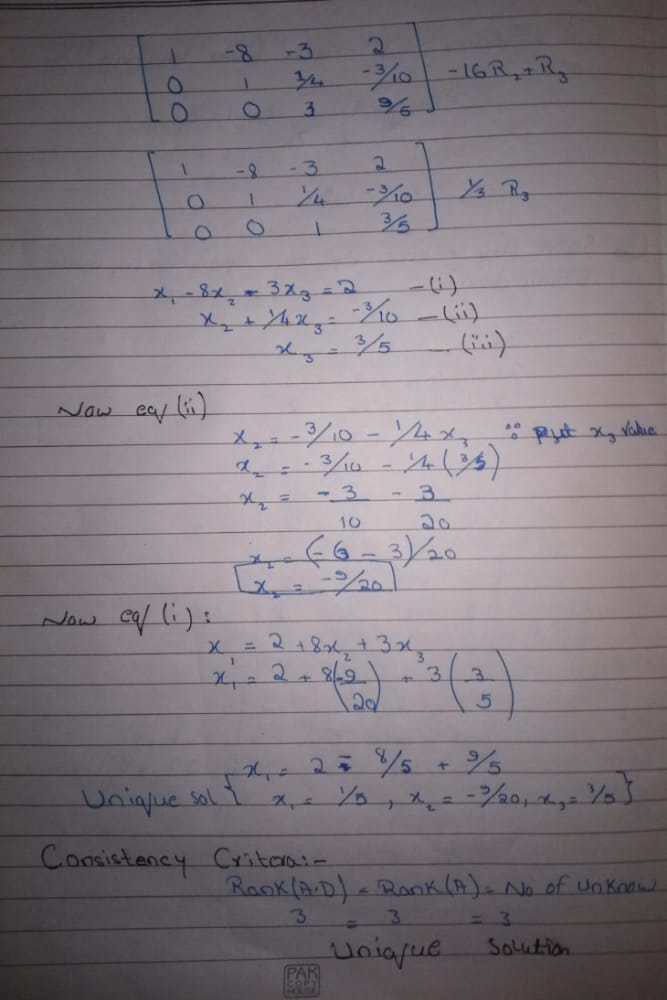 1 -8 -3 2
0 1 1/4 -3/10 -16R₂+R₃
0 0 3 9/5
1 -8 -3 2
0 1 1/4 -3/10 1/3 R₃
0 0 1 3/5
x₁ - 8x₂ - 3x₃ = 2 —(i)
x₂ + 1/4x₃ = -3/10 —(ii)
x₃ = 3/5 —(iii)
Now eq/(ii)
x₂ = -3/10 - 1/4 x₃ ∵ put x₃ value
x₂ = -3/10 - 1/4(3/5)
x₂ = -3/10 - 3/20
x₂ = (-6 - 3)/20
x₂ = -9/20
Now eq/(i):
x₁ = 2 + 8x₂ + 3x₃
x₁ = 2 + 8(-9/20) + 3(3/5)
x₁ = 2 - 8/5 + 9/5
Unique sol { x₁ = 1/5, x₂ = -9/20, x₃ = 3/5}
Consistency Critera:-
Rank(A.D) = Rank(A) = No of Unknow
3 = 3 = 3
Unique Solution
PAK
COPY
HOUSE